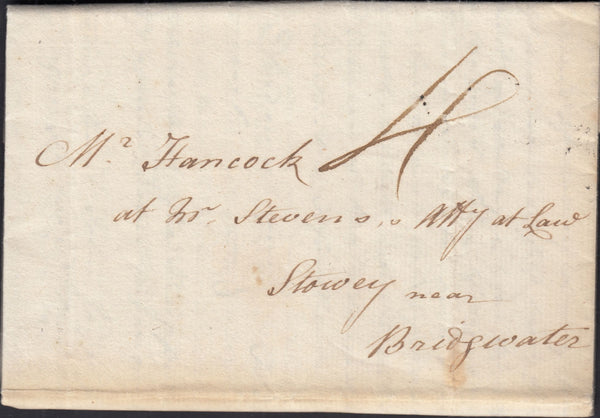 4
Mr Hancock
at Mr. Stevens,s Atty at Law
Stowey near
Bridgwater